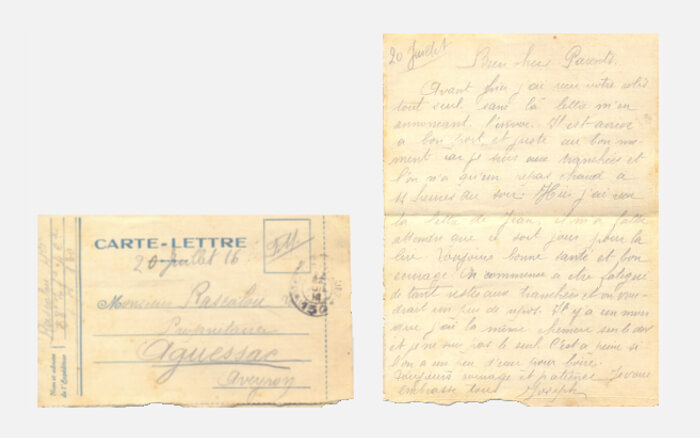 CARTE-LETTRE
F.M
20 Juillet 16
Monsieur Rascalou
Propriétaire
Aguessac
Aveyron
Nom et adresse
de l'Expéditeur
150
20 Juillet
Bien chers Parents.
Avant hier j'ai reçu votre colis
tout seul sans la lettre m'en
annoncant l'envoi. Il est arrivé
a bon port et juste au bon mo-
ment car je suis aux tranchées et
l'on n'a qu'un repas chaud a
11 heures du soir. Hier j'ai reçu
la lettre de Jean, il m'a fallu
attendre que ce soit jour pour la
lire. Toujours bonne santé et bon
courage. On commence a etre fatigué
de tant rester aux tranchées et on vou-
drait un peu de repos. Il y a un mois
que j'ai la même chemise sur le dos
et je ne suis pas le seul. C'est a peine si
l'on a un peu d'eau pour boire.
Toujours courage et patience Je vous
embrasse tous Joseph